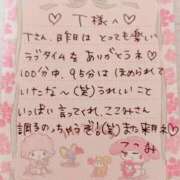 ♡ T様へ
Tさん、昨日は とっても楽しい
ラブタイムを ありがとうネ♡
100分中、95分は ほめられて
いたな〜(笑)うれしいこと
いっぱい言ってくれ、ここみさん
調子のっちゃうぞ!(笑)また来てネ♡
ここみ